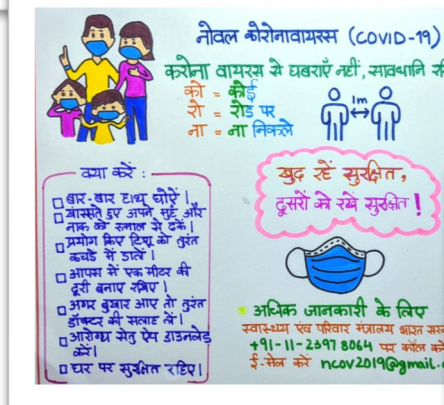 नोवल कोरोनावायरस (COVID-19)
करोना वायरस से घबराएँ नहीं, सावधानि
को = कोई
रो = रोड पर
ना = ना निकले
1m
क्या करें :
बार-बार हाथ धोऐं।
खांसते हुए अपने मुहँ और
नाक को रूमाल से ढकें।
प्रयोग किए टिशू को तुरंत
कचडे में डालें।
आपस में एक मीटर की
दूरी बनाए रखिए।
अगर बुखार आए तो तुरंत
डॉक्टर की सलाह लें।
आरोग्य सेतु ऐप डाउनलोड
करें।
घर पर सुरक्षित रहिए।
खुद रहें सुरक्षित,
दूसरों को रखें सुरक्षित!
* अधिक जानकारी के लिए
स्वास्थ्य एंव परिवार मंत्रालय भारत
+91-11-2397 8064 पर कॉल
ई-मेल करें ncov2019@gmail.